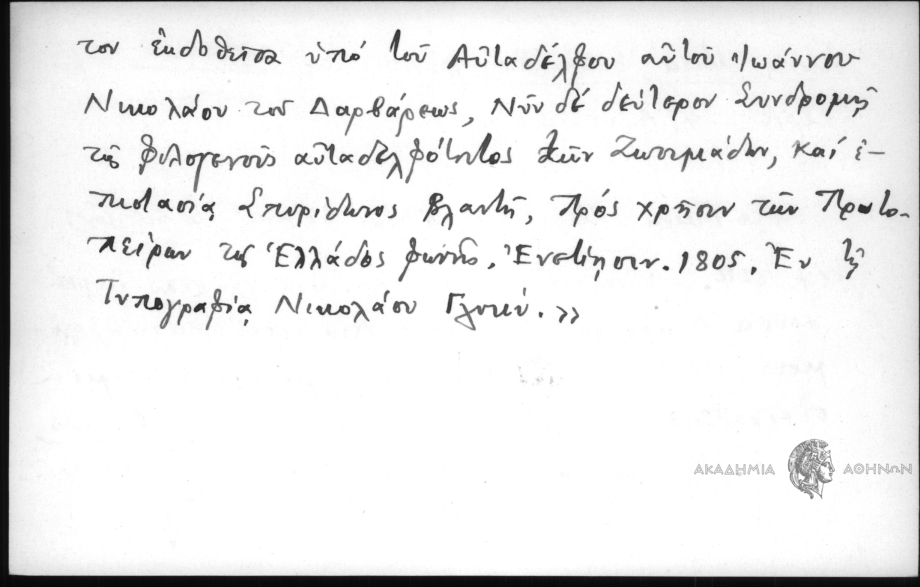 τον ἐκδοθεῖσα ὑπό τοῦ Αὐταδέλφου αὐτοῦ Ἰωάννου
Νικολάου τοῦ Δαρβάρεως, Νῦν δέ δεύτερον Συνδρομῇ
τῆς φιλογενοῦς αὐταδελφότητος τῶν Ζωσιμάδων, καί ἐ-
πιστασίᾳ Σπυρίδωνος Βλαντῆ, Πρός χρῆσιν τῶν Πρωτο-
πείρων τῆς Ἑλλάδος φωνῆς. Ἐνετίῃσιν. 1805. Ἐν τῇ
Τυπογραφίᾳ Νικολάου Γλυκύ. »
ΑΚΑΔΗΜΙΑ ΑΘΗΝΩΝ